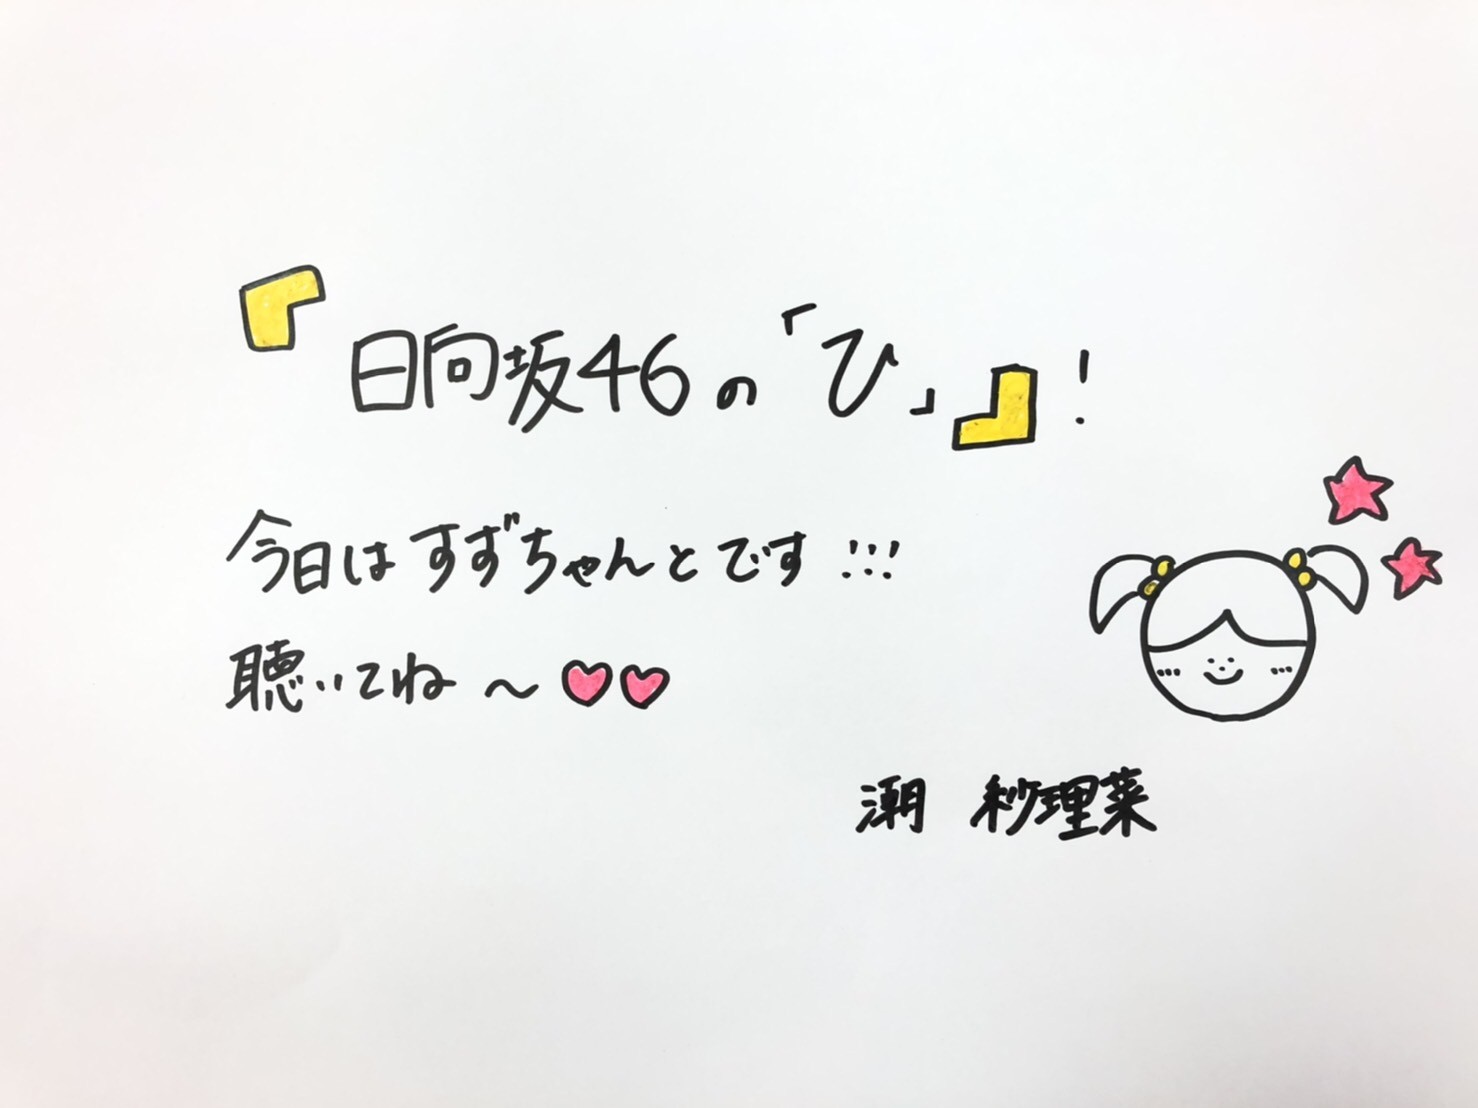 『日向坂46の「ひ」』!
今日はすずちゃんとです!!!
聴いてね〜♥♥
潮 紗理菜